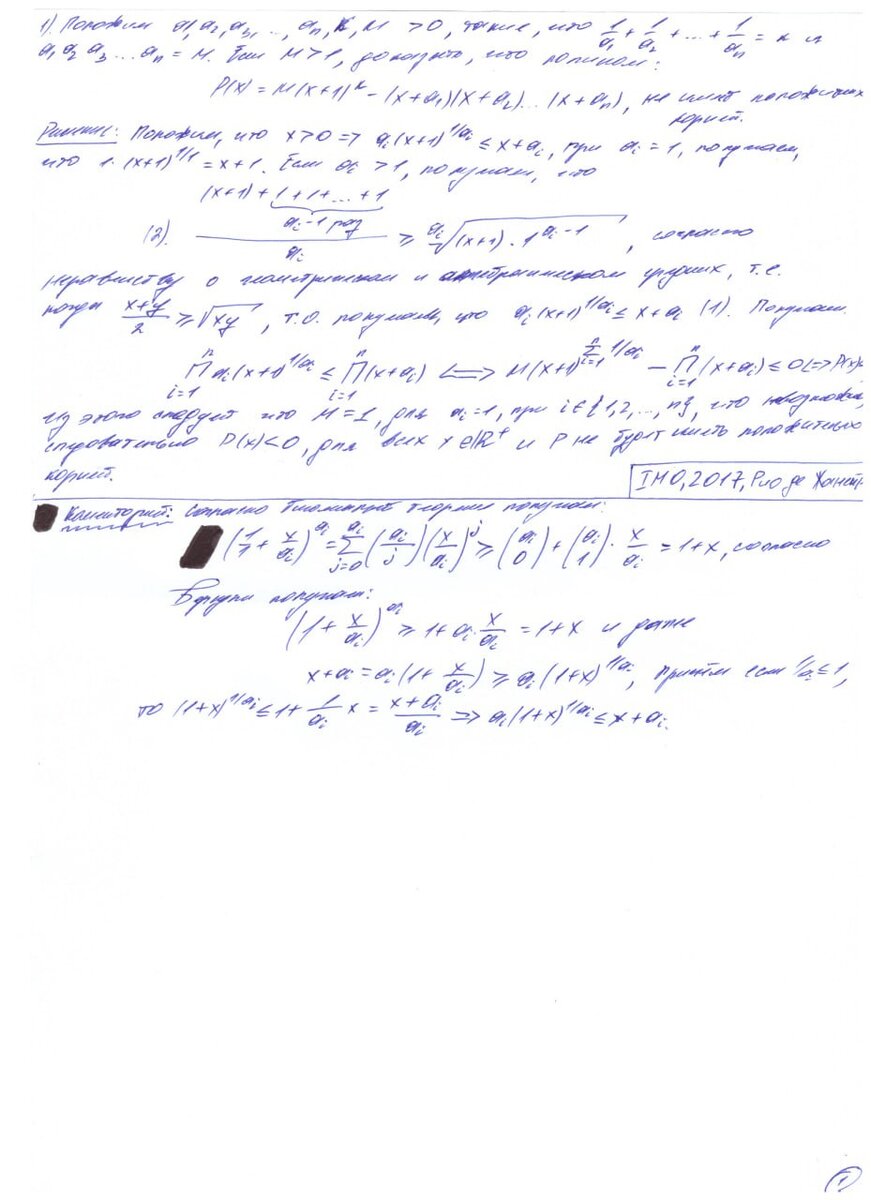 1). Положим a₁,a₂,a₃,…,aₙ,k,M >0, такие, что 1/a₁ + 1/a₂ + … + 1/aₙ = k и
a₁ a₂ a₃ … aₙ = M. Если M>1, доказать, что полином:
P(x) = M(x+1)ᵏ − (x+a₁)(x+a₂)…(x+aₙ), не имеет положительных
корней.
Решение: Положим, что x>0 => aᵢ(x+1)^{1/aᵢ} ≤ x+aᵢ, при aᵢ=1, получаем,
что 1·(x+1)^{1/1} = x+1. Если aᵢ >1, получаем, что
(x+1)+1+1+…+1
aᵢ−1 раз
(2). aᵢ ≥ ᵃⁱ√((x+1)·1^{aᵢ−1}), согласно
неравенству о геометрическом и алгебраическом средних, т.е.
когда (x+y)/2 ≥ √xy, т.о. получаем, что aᵢ(x+1)^{1/aᵢ} ≤ x+aᵢ (1). Получаем.
∏ᵢ₌₁ⁿ aᵢ(x+1)^{1/aᵢ} ≤ ∏ᵢ₌₁ⁿ (x+aᵢ) <=> M(x+1)^{∑ᵢ₌₁ⁿ 1/aᵢ} − ∏ᵢ₌₁ⁿ (x+aᵢ) ≤ 0 <=> P(x)
Из этого следует что M=1, для aᵢ=1, при i∈{1,2,…,n}, что невозможно,
следовательно P(x)<0, для всех x∈ℝ⁺ и P не будет иметь положительных
корней.
IMO, 2017, Рио де Жаней
Коментарий: Согласно биномной теореме получаем:
(1/1 + x/aᵢ)^{aᵢ} = ∑ⱼ₌₀^{aᵢ} (aᵢ j)(x/aᵢ)ʲ ≥ (aᵢ 0) + (aᵢ 1)·x/aᵢ = 1+x, согласно
Бернулли получаем:
(1 + x/aᵢ)^{aᵢ} ≥ 1+aᵢ x/aᵢ = 1+x и даже
x+aᵢ = aᵢ(1 + x/aᵢ) ≥ aᵢ(1+x)^{1/aᵢ}, причём если 1/aᵢ ≤ 1,
то (1+x)^{1/aᵢ} ≤ 1 + 1/aᵢ x = (x+aᵢ)/aᵢ => aᵢ(1+x)^{1/aᵢ} ≤ x+aᵢ.
1